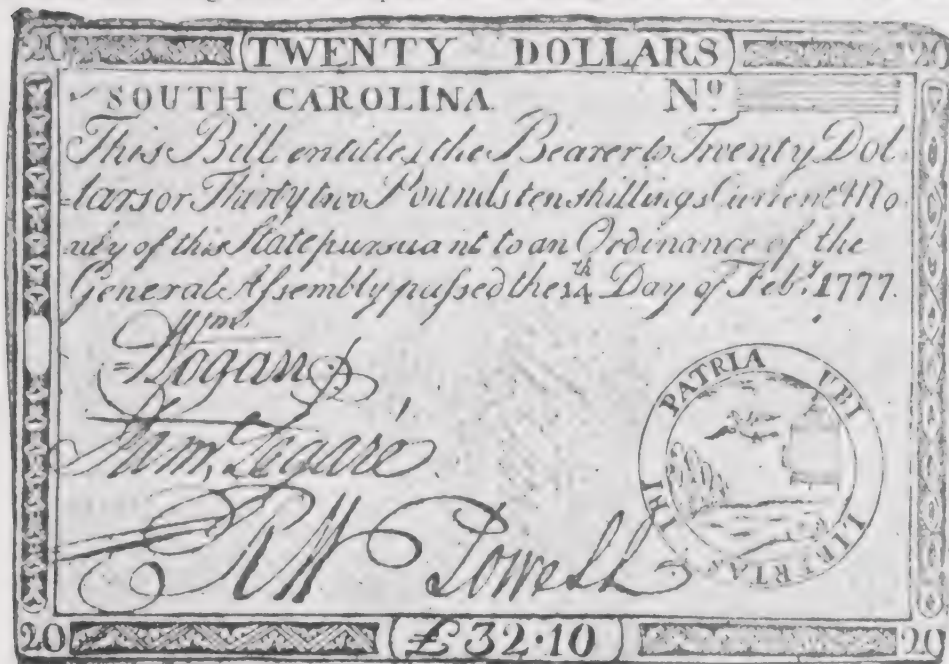 20 TWENTY DOLLARS 20
SOUTH CAROLINA Nº
This Bill entitles the Bearer to Twenty Dol
=lars or Thirty two Pounds ten shillings Current Mo
ney of this State pursuant to an Ordinance of the
General Assembly passed the 14th Day of Feb.y 1777.
Wm Logan
Sam.l Legaré
PATRIA UBI LIBERTAS IBI
R W Powell
20 £32·10 20